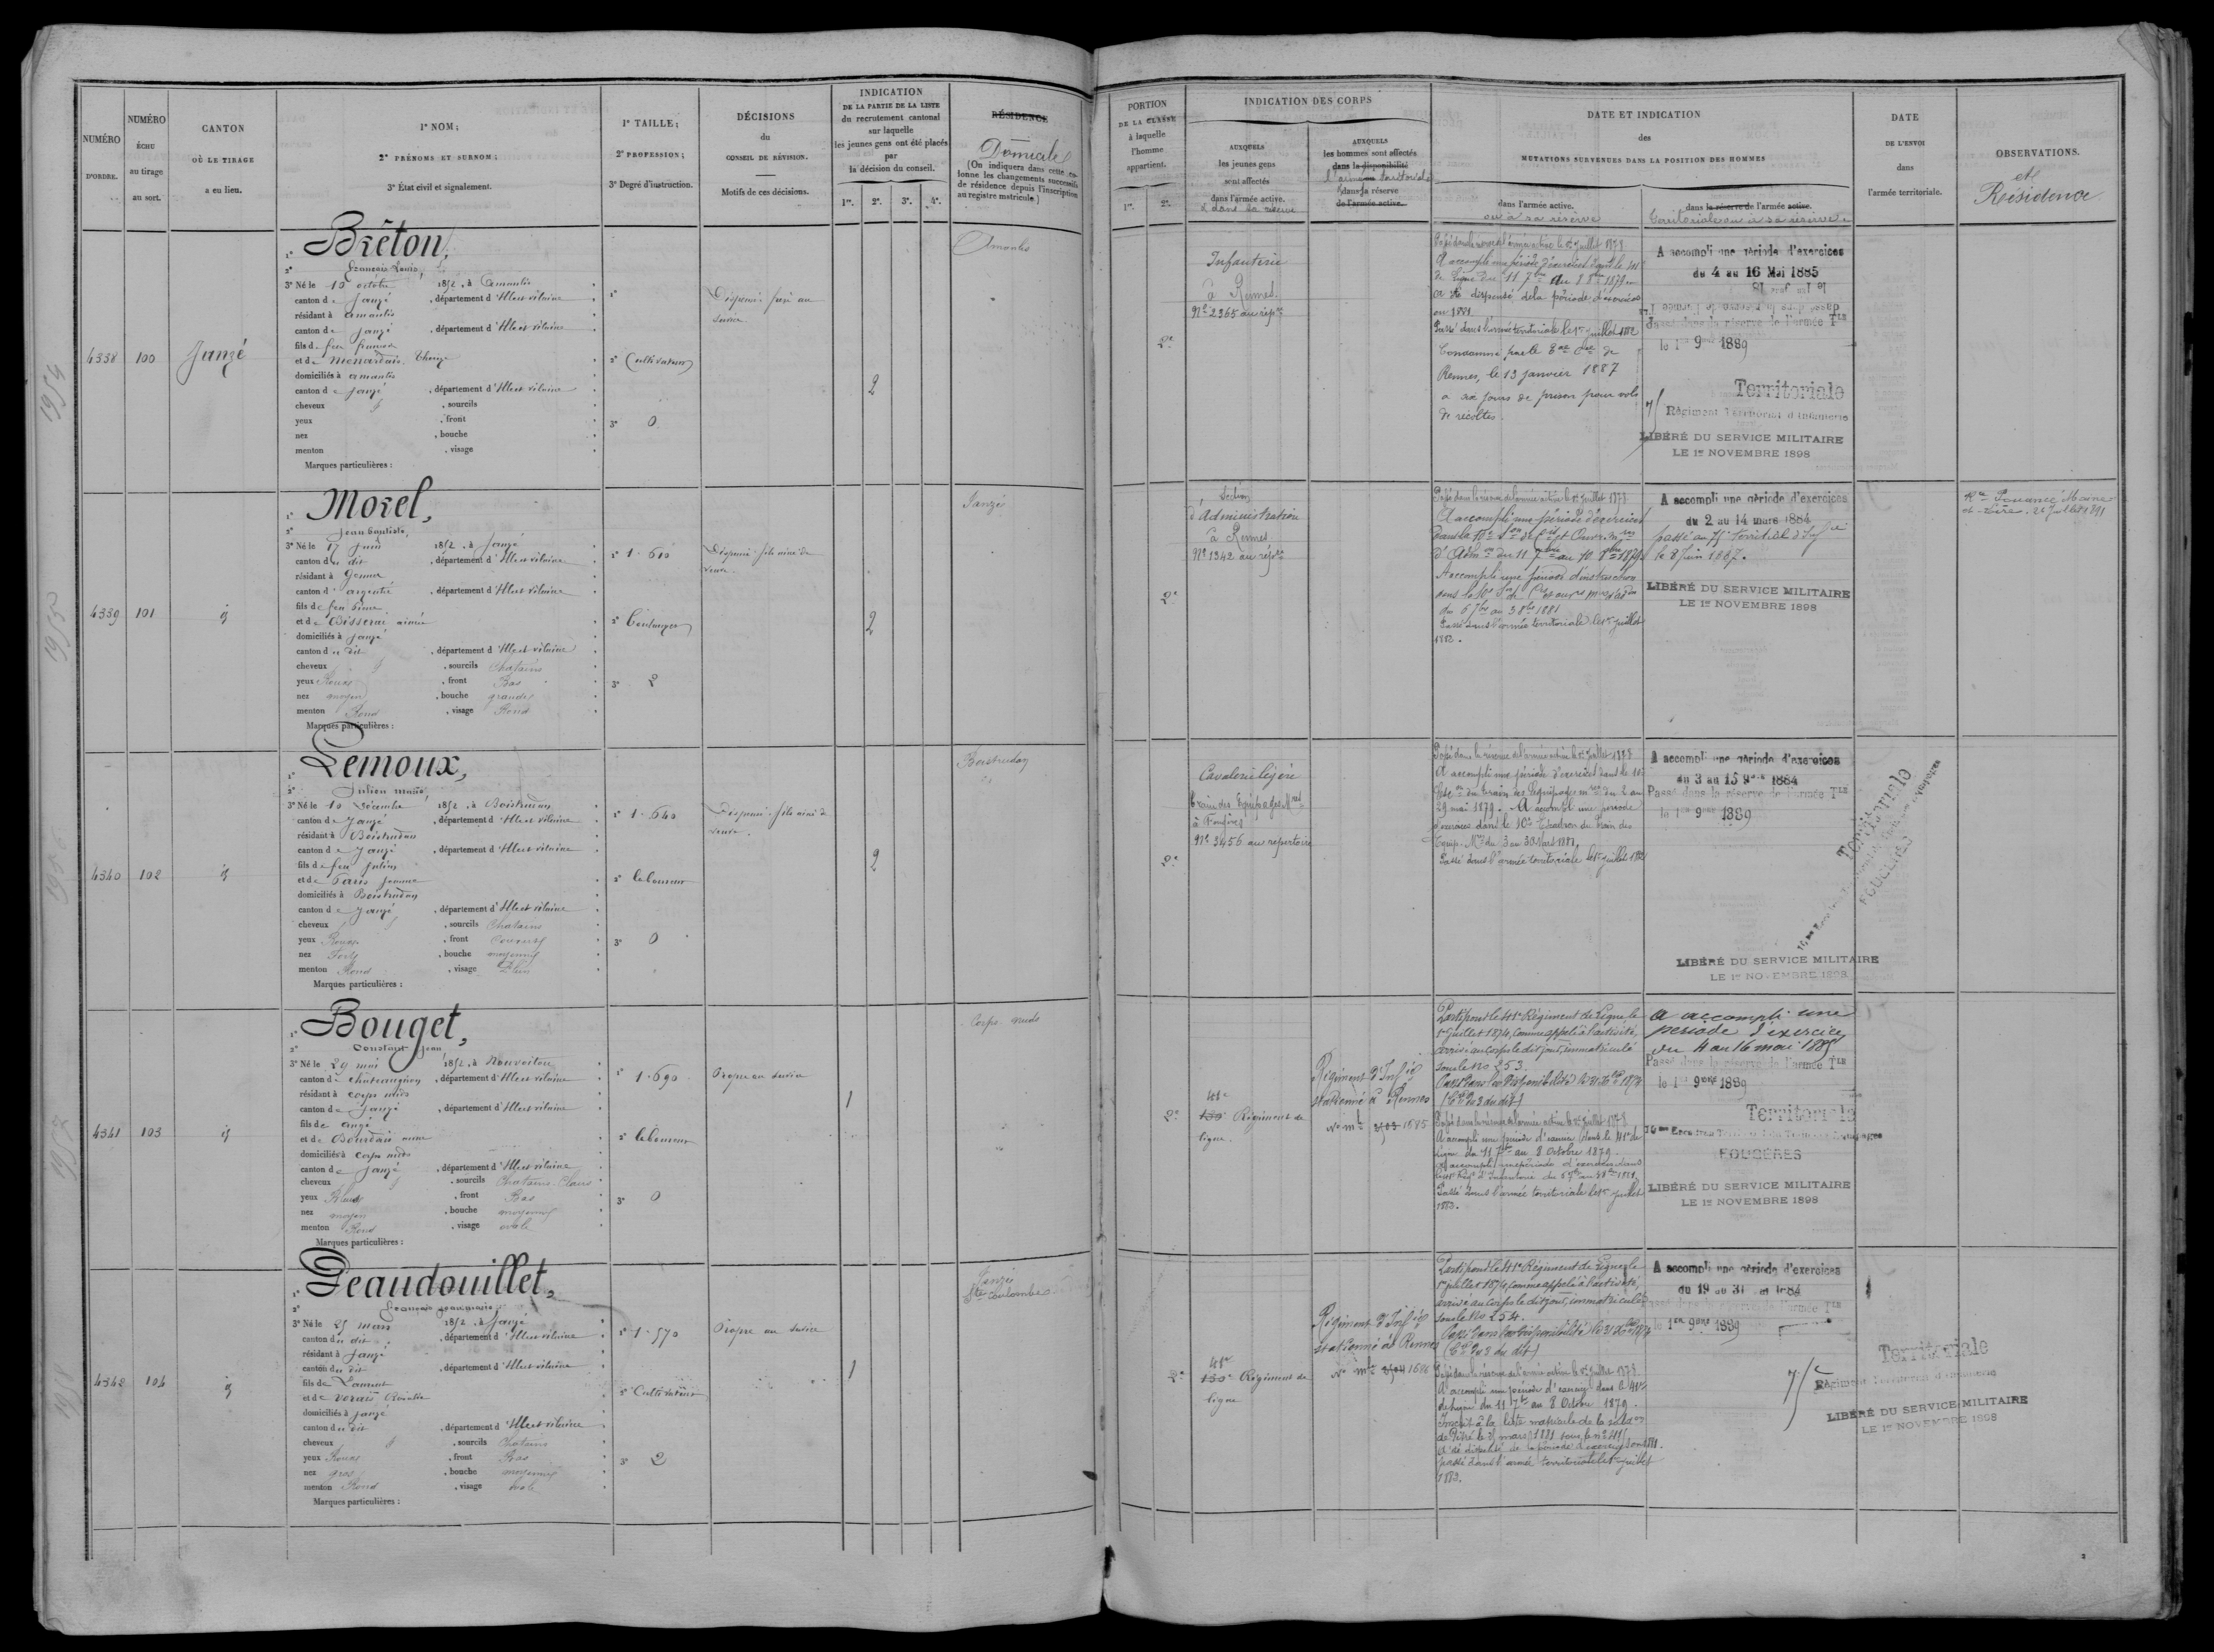 NUMÉRO
D'ORDRE.
NUMÉRO
ÉCHU
au tirage
au sort.
CANTON
OÙ LE TIRAGE
a eu lieu.
1º NOM;
2º PRÉNOMS ET SURNOM;
3º État civil et signalement.
1º TAILLE;
2º PROFESSION;
3º Degré d'instruction.
DÉCISIONS
du
CONSEIL DE RÉVISION.
Motifs de ces décisions.
INDICATION
DE LA PARTIE DE LA LISTE
du recrutement cantonal
sur laquelle
les jeunes gens ont été placés
par
la décision du conseil.
1re. 2e. 3e. 4e.
RÉSIDENCE
Domicile
(On indiquera dans cette co-
lonne les changements successifs
de résidence depuis l'inscription
au registre matricule.)
PORTION
DE LA CLASSE
à laquelle
l'homme
appartient.
1re. 2e.
INDICATION DES CORPS
AUXQUELS
les jeunes gens
sont affectés
dans l'armée active.
et dans la réserve
AUXQUELS
les hommes sont affectés
dans la disponibilité
l'armée territoriale
et dans sa réserve
de l'armée active.
DATE ET INDICATION
des
MUTATIONS SURVENUES DANS LA POSITION DES HOMMES
dans l'armée active.
ou à sa réserve
dans la réserve de l'armée active.
territoriale ou à sa réserve.
DATE
DE L'ENVOI
dans
l'armée territoriale.
OBSERVATIONS.
et
Résidence
4338 100 Janzé
1º Brêton,
2º François Louis,
3º Né le 10 octobre 1852, à Amanlis
canton de Janzé, département d'Ille et vilaine
résidant à amanlis
canton de Janzé, département d'Ille et vilaine
fils de feu françois
et de
domiciliés à amanlis
canton de Janzé, département d'Ille et vilaine
cheveux , sourcils
yeux , front
nez , bouche
menton , visage
Marques particulières :
1º
2º Cultivateur
3º 0
service.
2
Amanlis
2e
Infanterie
à Rennes.
Nº 2365 au répre
Passé dans la réserve de l'armée active le 1er juillet 1878
A accompli une période d'exercices dans le 41e
de ligne du 11 7bre au 8 8bre 1879
a été dispensé de la période d'exercices
en 1881.
Passé dans l'armée territoriale le 1er juillet 1882
Condamné par le
Rennes, le 13 janvier 1887
a six jours de prison pour vols
de récoltes.
A accompli une période d'exercices
du 4 au 16 Mai 1885
Passé dans la réserve de l'armée TLE
le 1er 9bre 1889
Territoriale
75
Régiment Territorial d'Infanterie
LIBÉRÉ DU SERVICE MILITAIRE
LE 1er NOVEMBRE 1898
4339 101 id
1º Morel,
2º Jean baptiste,
3º Né le 17 Juin 1852, à Janzé
canton du dit, département d'Ille et vilaine
résidant à Gennes
canton d'argentré, département d'Ille et vilaine
fils de feu
et de
domiciliés à Janzé
canton du dit, département d'Ille et vilaine
cheveux , sourcils Chatains
yeux Roux, front Bas
nez moyen, bouche grande
menton Rond, visage Rond
Marques particulières :
1º 1.610
2º Boulanger
3º 2
Dispensé fils ainé de
veuve.
2
Janzé
2e
Section
d'Administration
à Rennes
Nº 1342 au répre
Passé dans la réserve de l'armée active le 1er juillet 1878
A accompli une période d'exercices
du 11 7bre au 10 8bre 1879
A accompli une période d'instruction
du 6 7bre au 3 8bre 1881
Passé dans l'armée territoriale le 1er juillet
1882.
A accompli une période d'exercices
du 2 au 14 mars 1884
passé au 75 territorial d'Infie
le 8 Juin 1887.
LIBÉRÉ DU SERVICE MILITAIRE
LE 1er NOVEMBRE 1898
Rce Pouancé Maine-
et-Loire.
4340 102 id
1º Lemoux,
2º Julien marie,
3º Né le 10 Décembre 1852, à Boistrudan
canton de Janzé, département d'Ille et vilaine
résidant à Boistrudan
canton de Janzé, département d'Ille et vilaine
fils de feu julien
et de Paris jeanne
domiciliés à Boistrudan
canton de Janzé, département d'Ille et vilaine
cheveux , sourcils Chatains
yeux Roux, front Couvert
nez Fort, bouche moyenne
menton Rond, visage Plein
Marques particulières :
1º 1.640
2º laboureur
3º 0
Dispensé fils ainé de
veuve.
2
Boistrudan
2e
Cavalerie légère
train des Equipages Mres
à Fougères
Nº 3456 au répertoire
Passé dans la réserve de l'armée active le 1er juillet 1878
A accompli une période d'exercices dans le 10e
Esc. du train des Equipages mres du 2 au
29 mai 1879. A accompli une période
d'exercices dans le 10e Escadron du train des
Equip. Mres du 3 au 30 Mars 1881,
Passé dans l'armée territoriale le 1er juillet 1882
A accompli une période d'exercices
du 3 au 15 9bre 1884
Passé dans la réserve de l'armée TLE
le 1er 9bre 1889
Territoriale
FOUGÈRES
LIBÉRÉ DU SERVICE MILITAIRE
LE 1er NOVEMBRE 1898
4341 103 id
1º Bouget,
2º Constant Jean
3º Né le 29 mai 1852, à Nouvoitou
canton de Chateaugiron, département d'Ille et vilaine
résidant à corps nuds
canton de Janzé, département d'Ille et vilaine
fils de ange
et de Bourdais anne
domiciliés à corps nuds
canton de Janzé, département d'Ille et vilaine
cheveux , sourcils Chatains Clairs
yeux Bleus, front Bas
nez moyen, bouche moyenne
menton Rond, visage ovale
Marques particulières :
1º 1.690
2º laboureur
3º 0
Propre au service
1
Corps nuds
2e
41e
130e Régiment de
ligne.
Régiment d'Infie
stationné à Rennes
Nº mle 2503 1685
Parti pour le 41e Régiment de Ligne le
1er juillet 1874, Comme appelé à l'activité,
arrivé au corps le dit jour, immatriculé
sous le No 253.
Passé dans la disponibilité le 31 Xbre 1874
Passé dans la réserve de l'armée active le 1er juillet 1878
A accompli une période d'exercices dans le 41e de
ligne du 11 7bre au 8 Octobre 1879.
A accompli une période d'exercices dans
Passé dans l'armée territoriale le 1er juillet
1883.
A accompli une
période d'exercices
du 4 au 16 mai 1885
Passé dans la réserve de l'armée TLE
le 1er 9bre 1889
Territoriale
FOUGÈRES
LIBÉRÉ DU SERVICE MILITAIRE
LE 1er NOVEMBRE 1898
4342 104 id
1º Geaudouillet,
2º François jean marie
3º Né le 25 mars 1852, à Janzé
canton du dit, département d'Ille et vilaine
résidant à Janzé
canton du dit, département d'Ille et vilaine
fils de Laurent
et de
domiciliés à janzé
canton du dit, département d'Ille et vilaine
cheveux , sourcils Chatains
yeux Roux, front Bas
nez gros, bouche moyenne
menton Rond, visage ovale
Marques particulières :
1º 1.570
2º Cultivateur
3º 2
Propre au service
1
Janzé
Ste Coulombe
2e
41e
130e Régiment de
ligne
Régiment d'Infie
stationné à Rennes
Nº mle 2504 1686
Parti pour le 41e Régiment de Ligne le
1er juillet 1874, comme appelé à l'activité,
arrivé au Corps le dit jour, immatriculé
sous le No 254.
Passé dans la disponibilité le 31 Xbre 1874
Passé dans la réserve de l'armée active le 1er juillet 1878
A accompli une période d'exercices dans le 41e
de ligne du 11 7bre au 8 Octobre 1879.
Inscrit à la liste matricule de la subdon
de Vitré le 5 mars 1881 sous le nº 415
A été dispensé de la période d'exercices en 1881.
passé dans l'armée territoriale le 1er juillet
1883.
A accompli une période d'exercices
du 19 au 31 mai 1884
Passé dans la réserve de l'armée TLE
le 1er 9bre 1889
Territoriale
75e
Régiment Territorial d'Infanterie
LIBÉRÉ DU SERVICE MILITAIRE
LE 1er NOVEMBRE 1898
1954
1955
1956
1957
1958